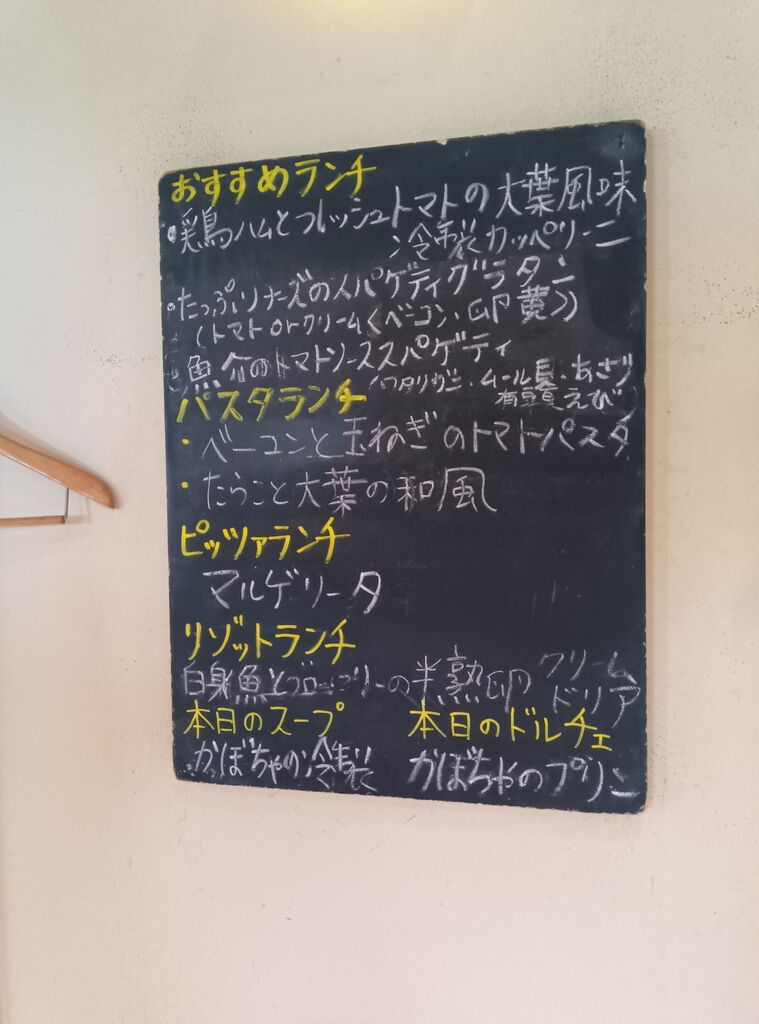 おすすめランチ
・鶏ハムとフレッシュトマトの大葉風味
冷製カッペリーニ
・たっぷりチーズのスパゲティグラタン
(トマトorクリーム<ベーコン、卵黄>)
魚介のトマトソーススパゲティ
ワタリガニ・ムール貝・あさり
有頭えび
パスタランチ
・ベーコンと玉ねぎのトマトパスタ
・たらこと大葉の和風
ピッツァランチ
マルゲリータ
リゾットランチ
白身魚とブロッコリーの半熟卵 クリーム
ドリア
本日のスープ 本日のドルチェ
かぼちゃの冷製 かぼちゃのプリン